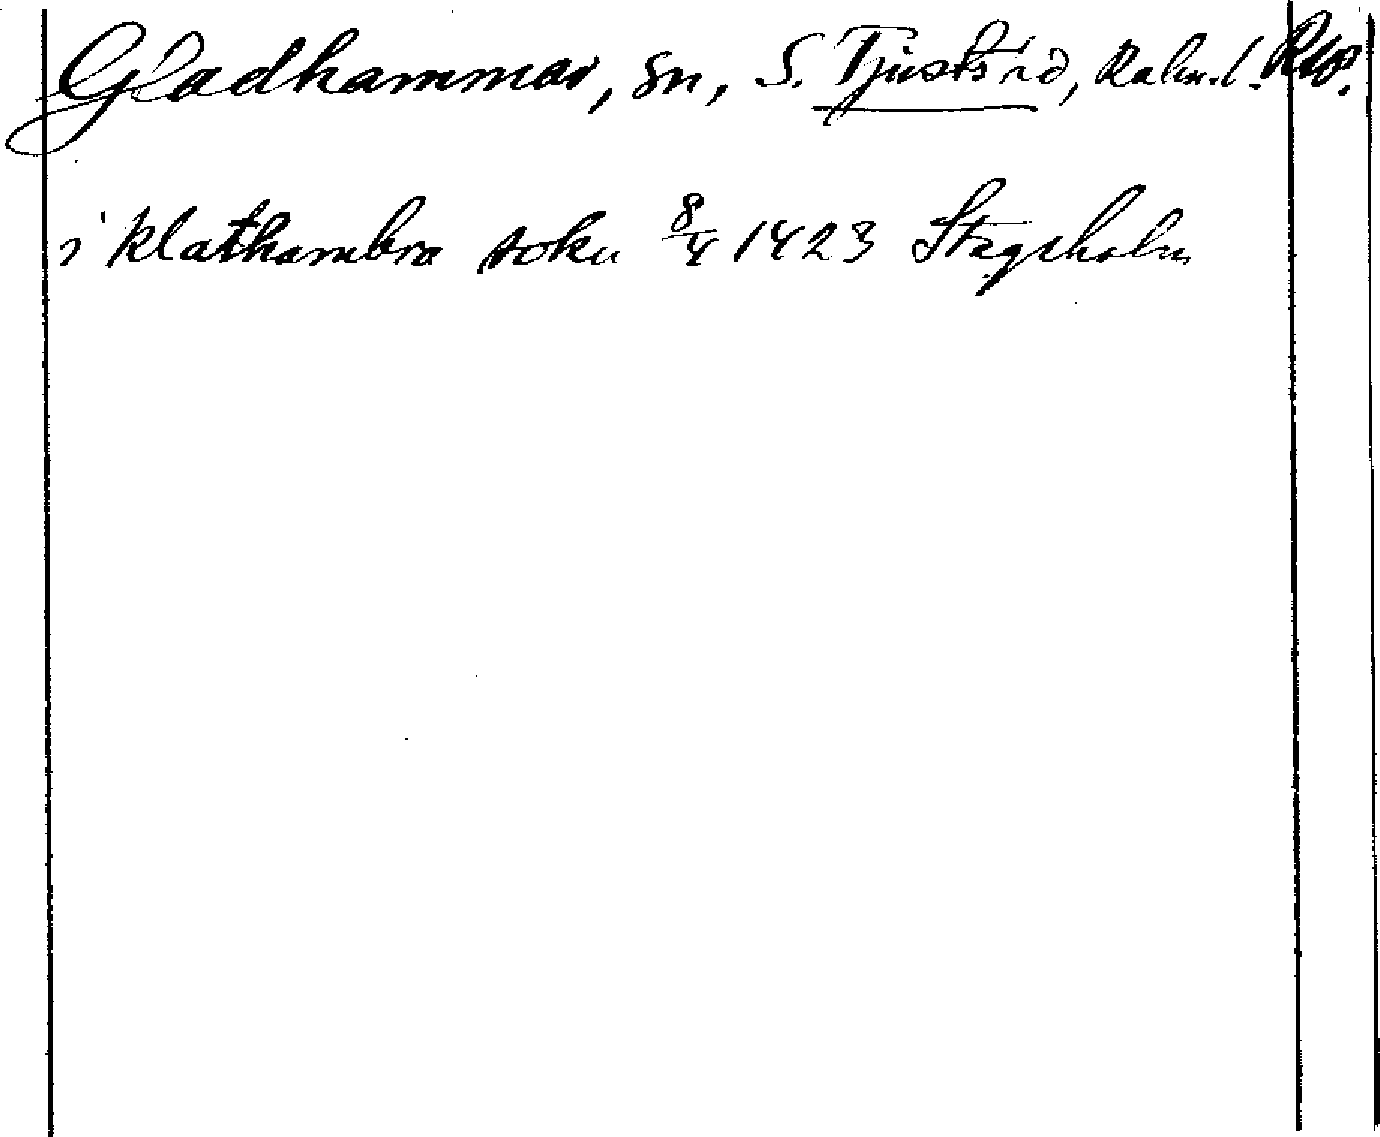 Gladhammar, sn, S. Tjusts hd, Kalm.l. Rep.
i klathambra sokn 8/4 1423 Stegeholm